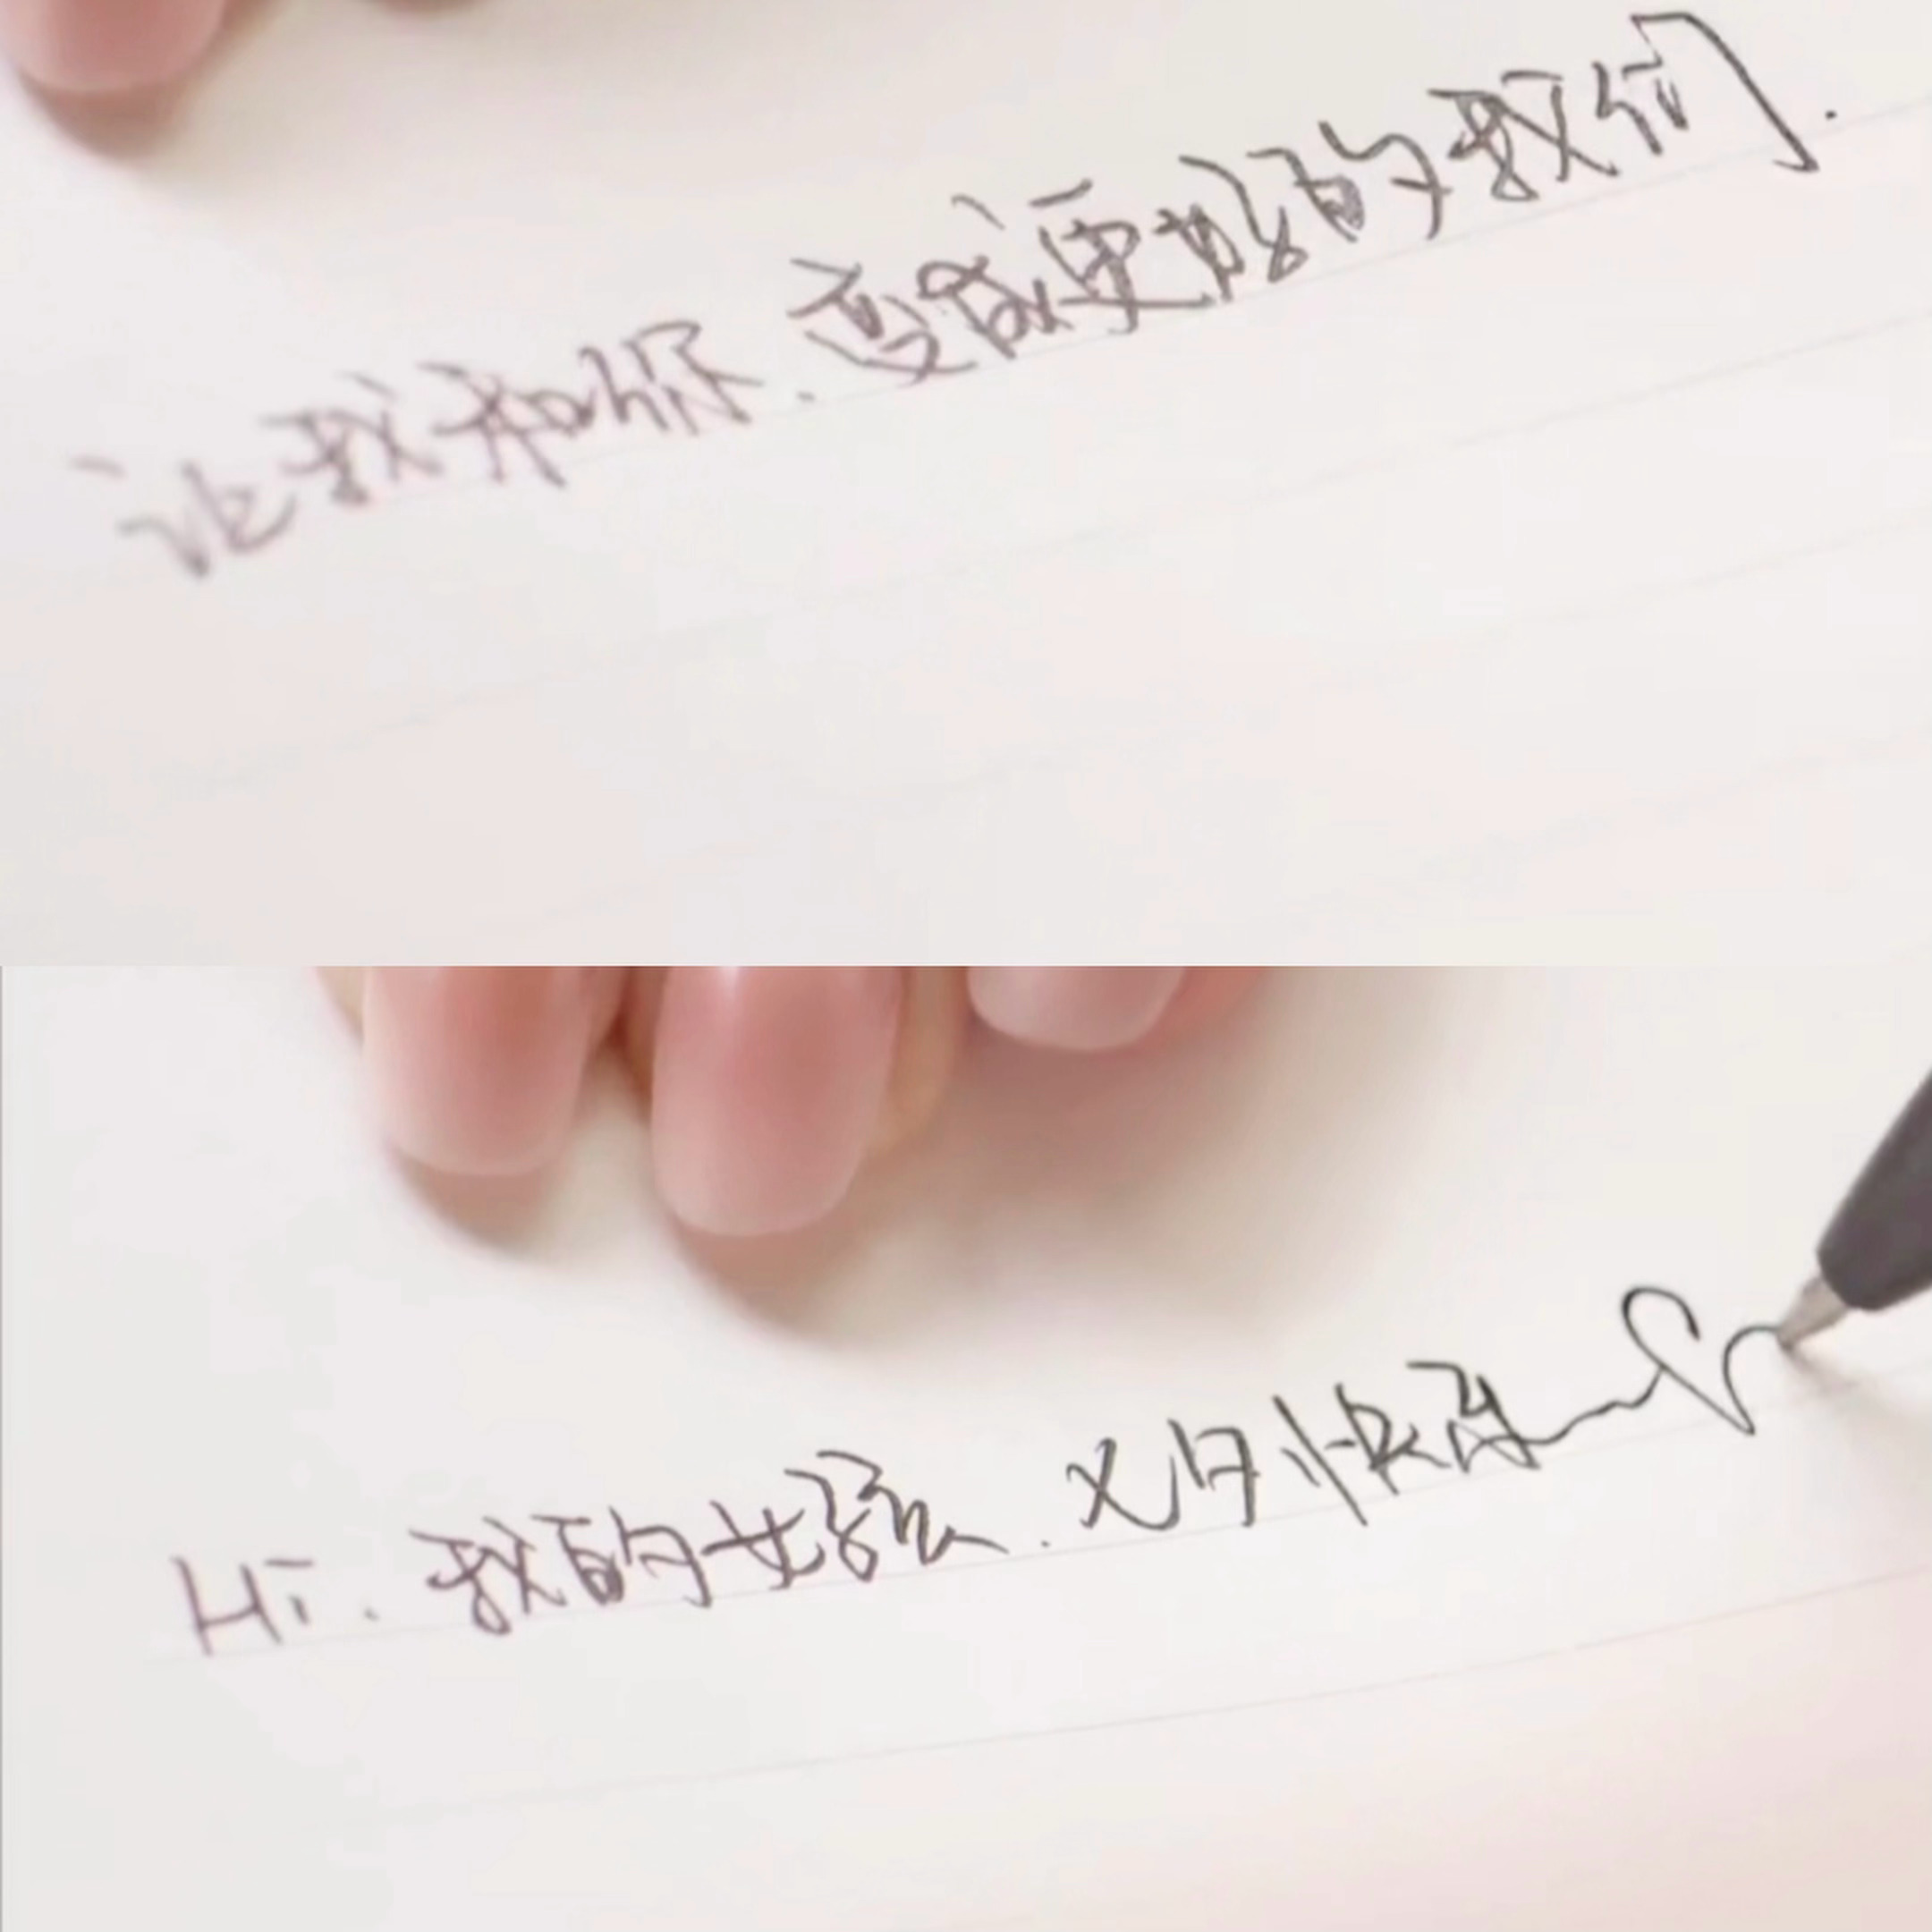 让我和你.变成更好的我们.
Hi.我的女孩.义日快乐